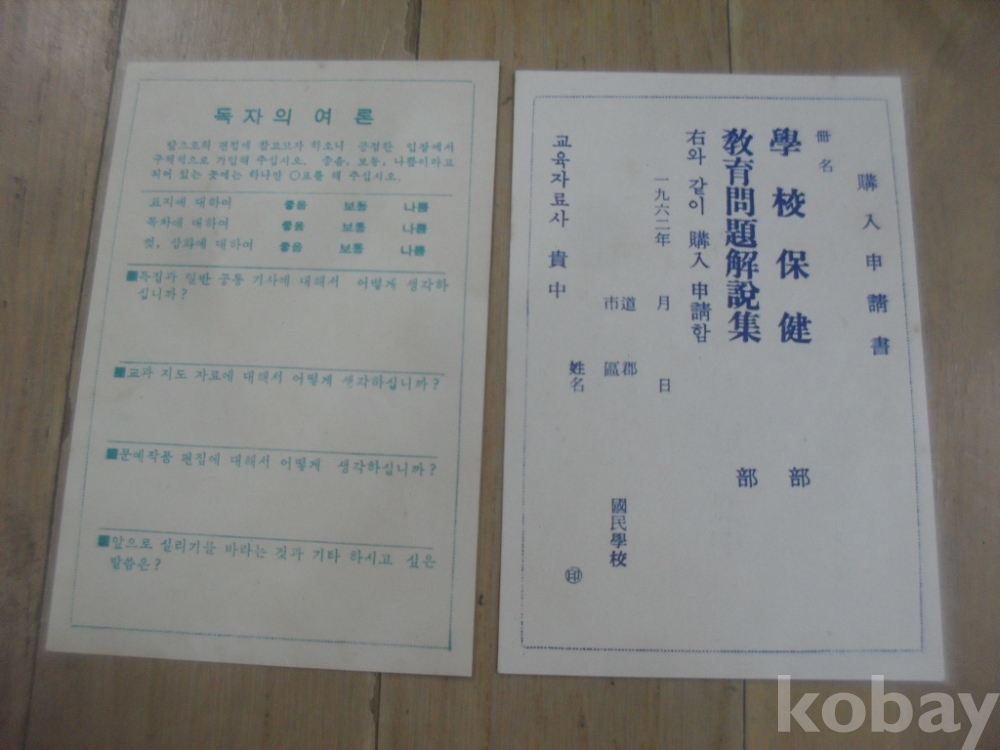 독자의 여론
앞으로의 편집에 참고코자 하오니 공정한 입장에서
구체적으로 기입해 주십시오. 좋음, 보통, 나쁨이라고
되어 있는 곳에는 하나만 ○표를 해 주십시오.
표지에 대하여 좋음 보통 나쁨
목차에 대하여 좋음 보통 나쁨
컷, 삽화에 대하여 좋음 보통 나쁨
■특집과 일반 공통 기사에 대해서 어떻게 생각하
십니까?
■교과 지도 자료에 대해서 어떻게 생각하십니까?
■문예작품 편집에 대해서 어떻게 생각하십니까?
■앞으로 실리기를 바라는 것과 기타 하시고 싶은
말씀은?
購入申請書
冊名
學校保健 部
敎育問題解說集 部
右와 같이 購入 申請함
一九六二年 月 日
道 郡
市 區
國民學校
姓名 印
교육자료사 貴中
kobay